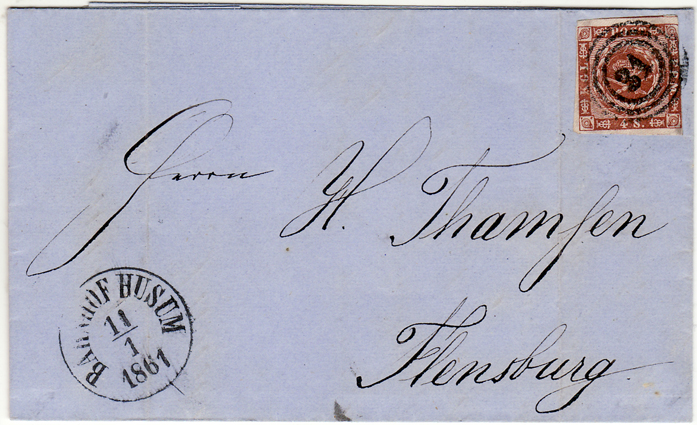 KGL
4 S.
34
Herrn H. Thamsen
Flensburg.
BAHNHOF HUSUM
11
1
1861